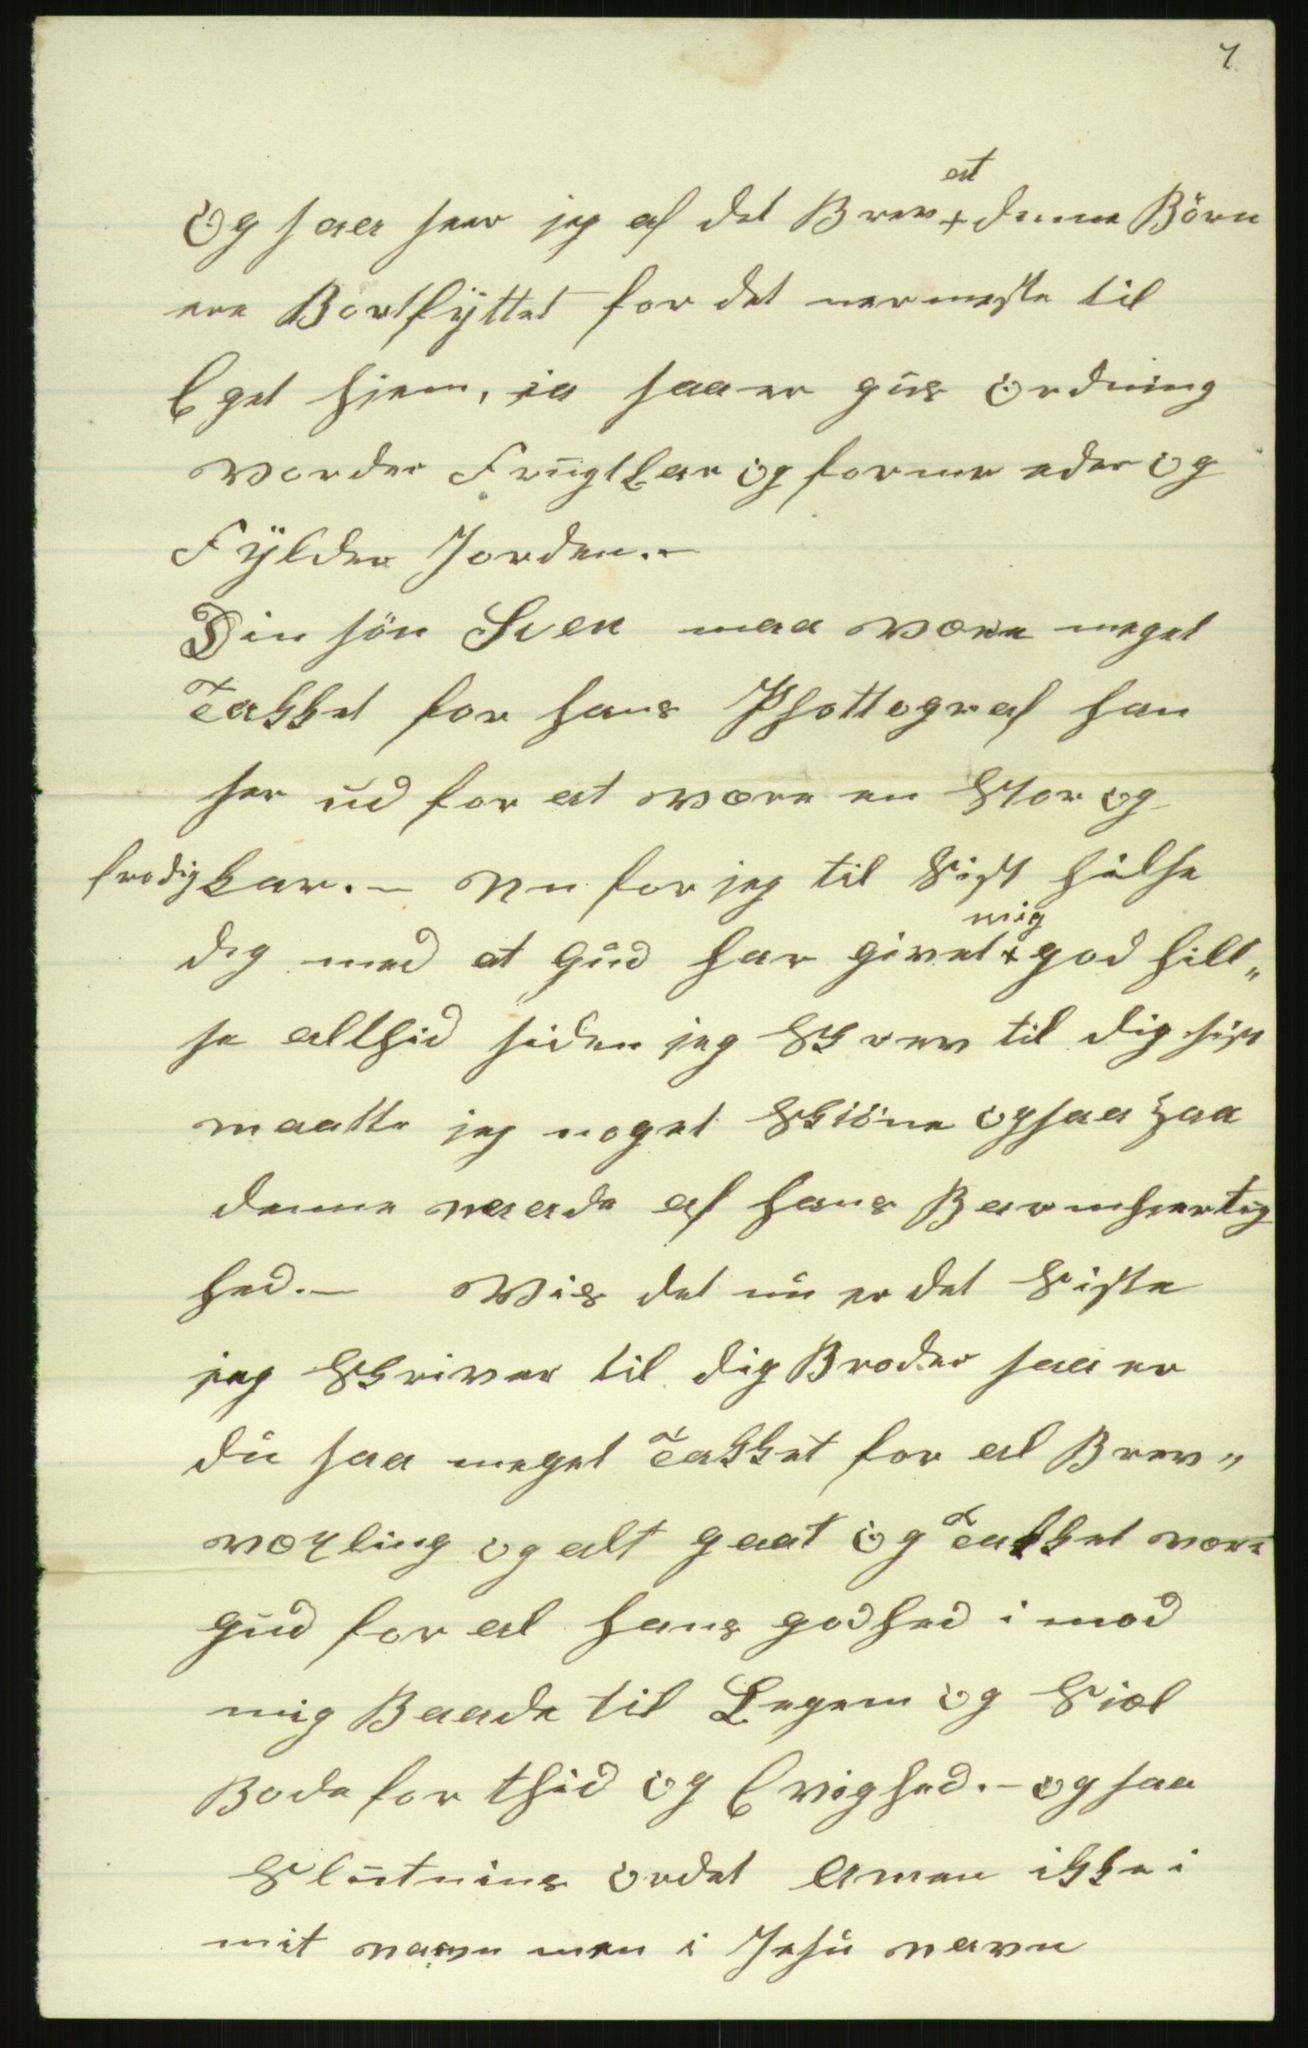 7
Og saa seer jeg af det Brev at denne Börn
ere Bortflyttet for det nermeste til
Eget hjem, ia saa er gus Ordning
vorder Frugtbar og formr eder og
Fylder Jorden.-
Din sön Sven maa være meget
Takket for hans Phottograf han
ser ud for at være en Stor og
frodig kar.- Nu for jeg til Sist hilse
dig med at Gud har givet mig god hill„
se althid siden jeg Skrev til dig sist
maatte jeg noget Skiöne ogsaa paa
denne naade af hans Barmhertig
hed.- Vis det nu er det Siste
jeg Skriver til dig Broder saa er
du saa meget Takket for al Brev„
væxling og alt gaat og Takket være
Gud for al hans godhed i mod
mig Baade til Legem og Siæl
Bode for thid og Evighed.- og saa
Slutnins ordet Amen ikke i
mit navn men i Jesu navn